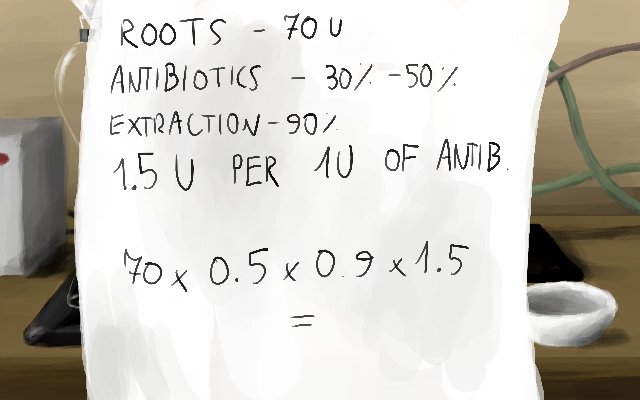 ROOTS - 70 U
ANTIBIOTICS - 30% - 50%
EXTRACTION - 90%
1.5 U PER 1U OF ANTIB.
70 x 0.5 x 0.9 x 1.5
=